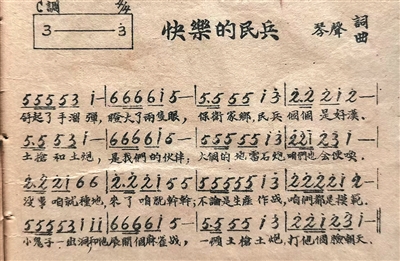 C調 2/4
3 —— 3
快樂的民兵
琴聲 詞曲
5 5 5 5 3 i — | 6 6 6 6 i 5 — | 5.5 5 5 i 3 | 2.2 2 2 i 2 — |
背起了手溜彈, 瞪大了兩隻眼, 保衛家鄉,民兵個個是好漢。
5.5 5 3 i — | 6.6 6 6 i 5 — | 5.5 5 5 i 3 | 2.2 2 2 3 i — |
土槍和土炮, 是我們的伙伴; 大個的地雷石炮咱們也会使喚。
2.2 2 i 6 6 | 2.2 2 i 5 5 | 5 5 5 5 i 3 | 2 2 2 2 i 2 — |
沒事咱就種地,來了咱就幹幹;不論是生產作战,咱們都是模範。
5 5 5 5 3 i i i | 6 6 6 6 i 5 — | 5.5 5 5 i 3 | 2 2 i 2 3 i — |
小鬼子一出洞和他展開個麻雀战, 一頓土槍土炮,打他個臉朝天。